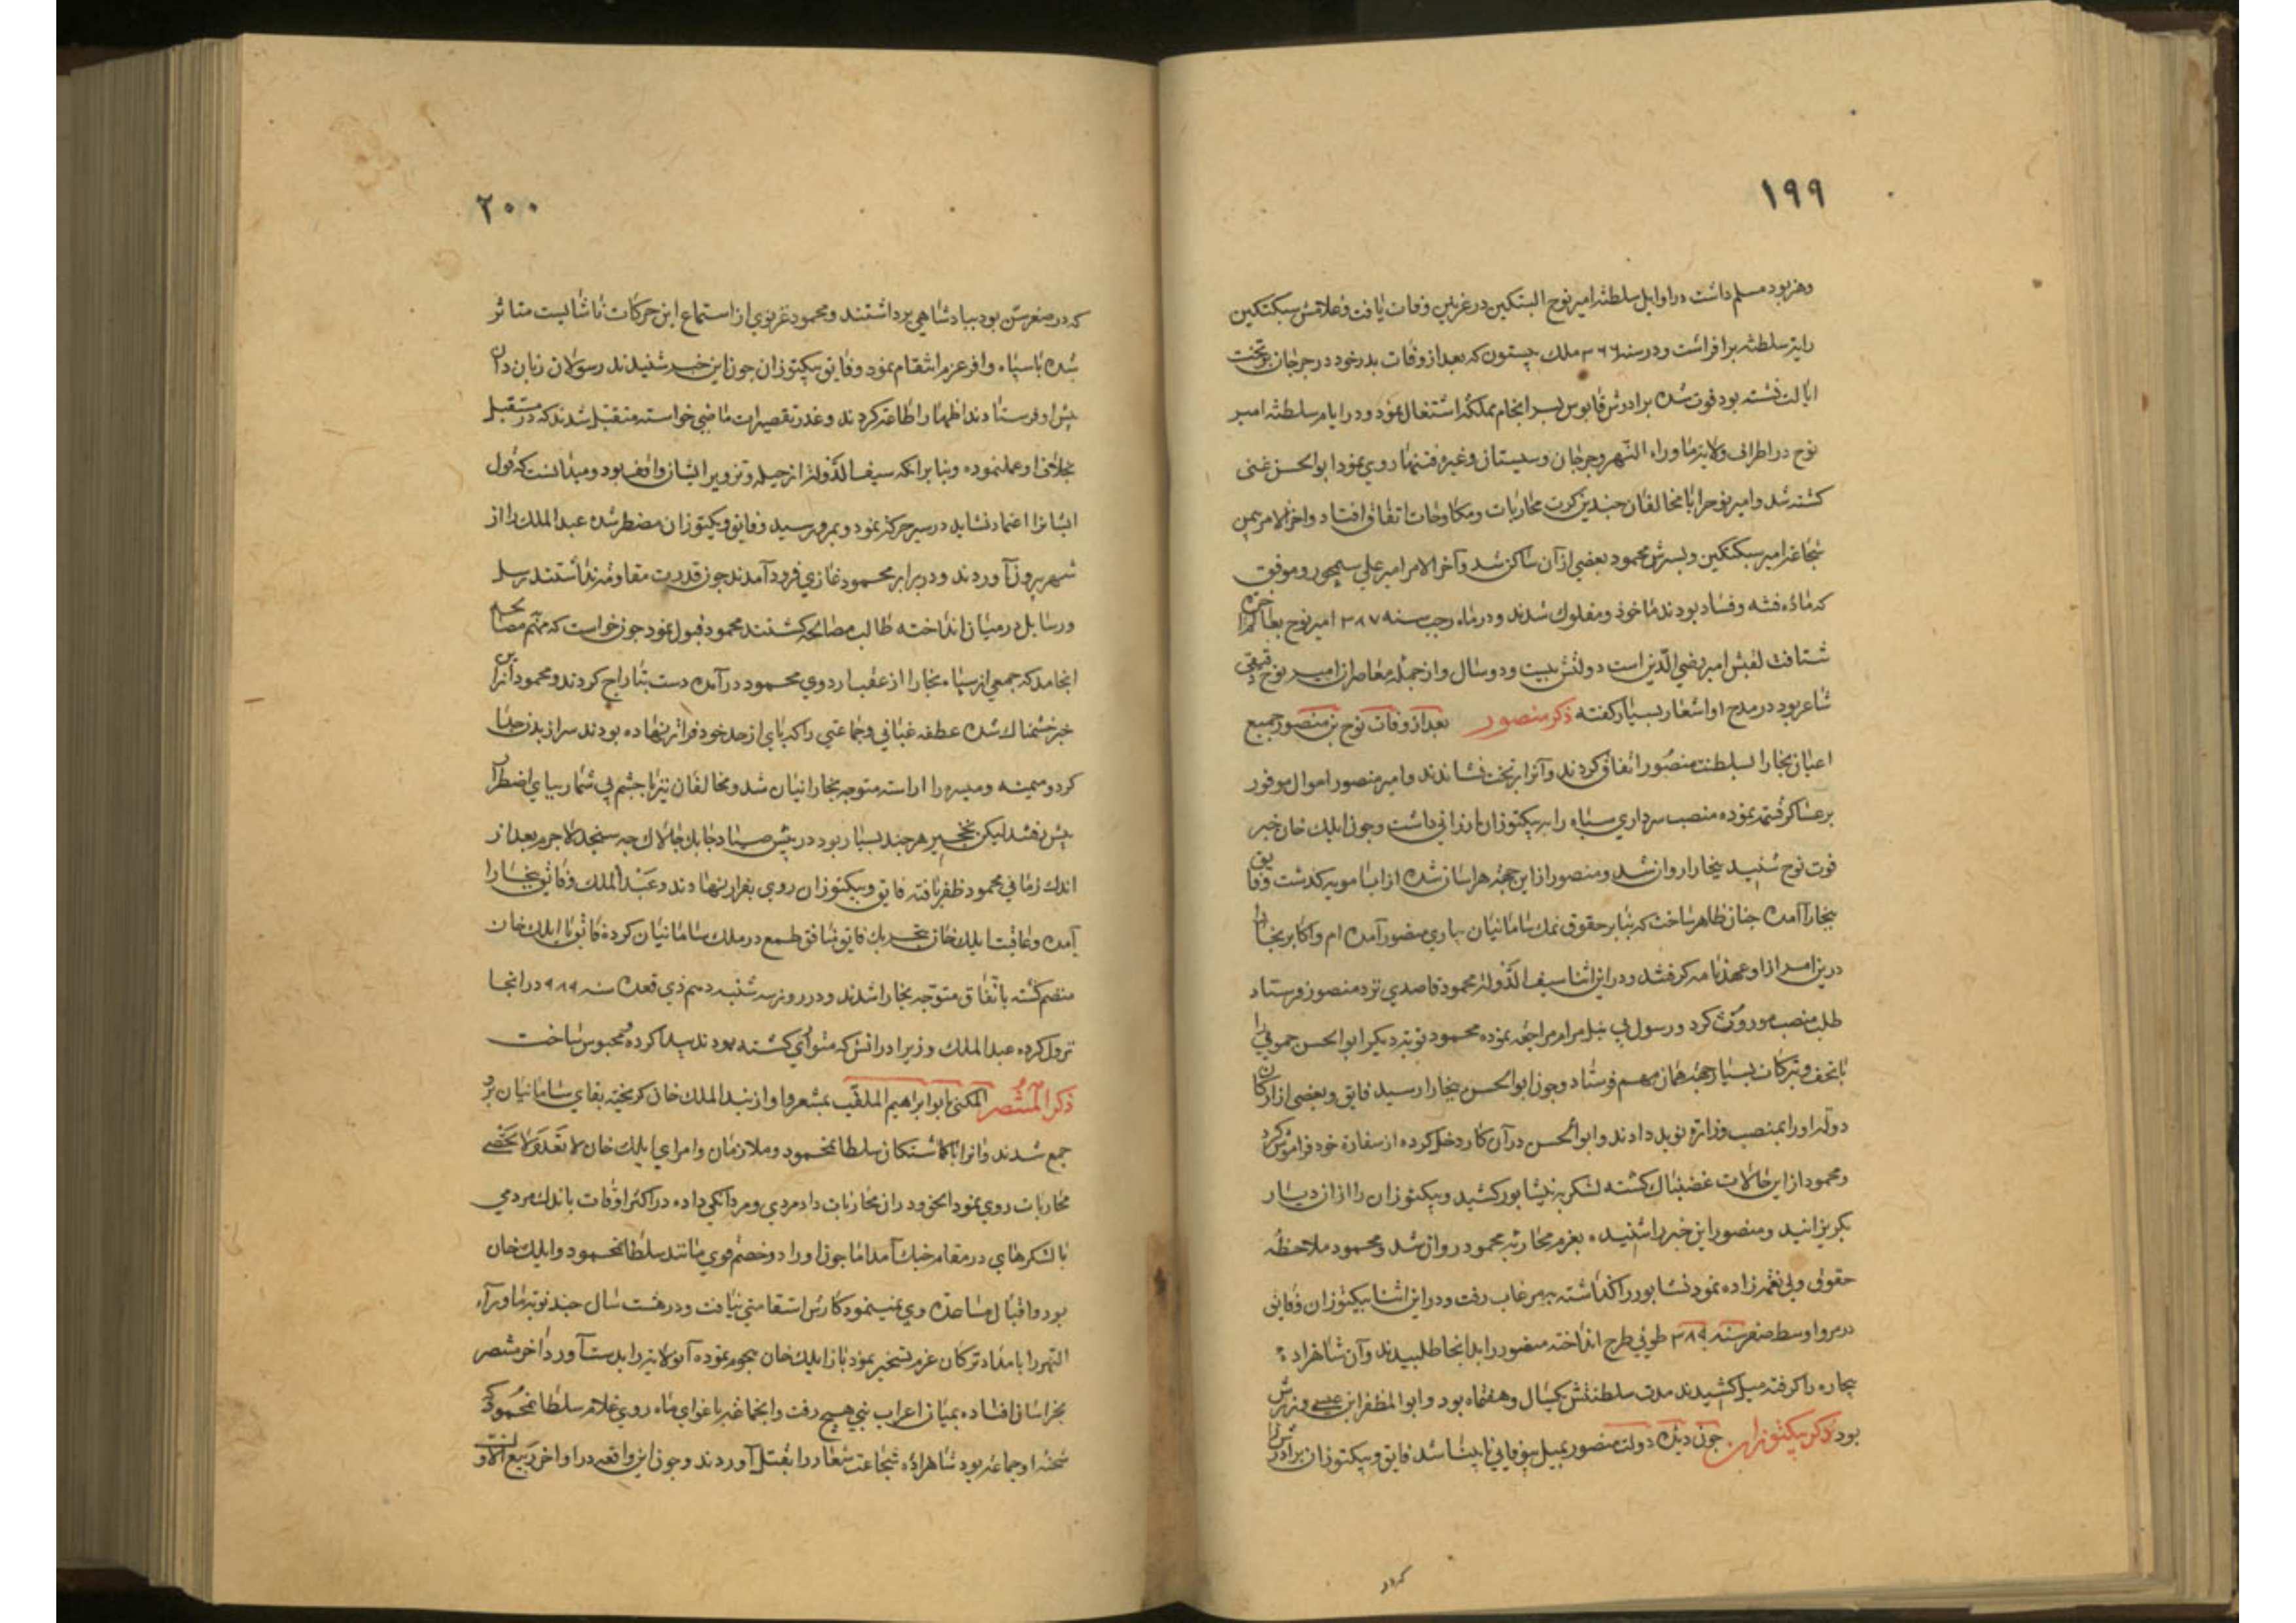 ١٩٩
وهنر بود مسلم داشت در اوایل سلطنة امیر نوح البتکین در غزنین وفات یافت وغلامش سبکتکین
رایة سلطنة برافراشت ودر سنه ٣٦٦ ملک بیستون که بعد از وفات پدر خود در جرجان بر تخت
ایالت نشسته بود فوت شده برادرش قابوس بسر انجام مملکة اشتغال نمود ودر ایام سلطنة امیر
نوح در اطراف ولایة ماوراء النهر وجرجان وسیستان وغیره فتنها روی نمود ابوالحسن عتبی
کشته شد وامیر نوح را با مخالفان جندین کرت محاربات ومکاوحات اتفاق افتاد واخر الامر بیمن
شجاعة امیر سبکتکین وپسرش محمود بعضی از آن ساکن شد وآخر الامر امیر علی سیمجور وموفق
که ماده فتنه وفساد بودند ماخوذ ومفلوک شدند ودر ماه رجب سنه ٣٨٧ امیر نوح بعالم آخرت
شتافت لقبش امیر رضی الدین است دولتش بیست ودو سال واز جمله معاصران امیر نوح دقیقی
شاعر بود در مدح او اشعار بسیار کفته ذکر منصور بعد از وفات نوح بن منصور جمیع
اعیان بخارا بسلطنت منصور اتفاق کردند وآنرا بر تخت نشاندند وامیر منصور اموال موفور
بر عساکر قسمة نموده منصب سرداری سپاه را به بیکتوزان ارزانی داشت وجون ایلک خان خبر
فوت نوح شنید ببخارا روان شد ومنصور از این جهة هراسان شده از اب امویه کذشت وفایق
ببخارا آمده جنان ظاهر ساخت که بنا بر حقوق نمک سامانیان بیاری منصور آمده ام واکابر بخارا
درین امر از او عهدنامه کرفتند ودر این اثنا سیف الدولة محمود قاصدی نزد منصور فرستاد
طلب منصب موروث کرد ورسول بی نیل مرام مراجعة نموده محمود نوبة دیکر ابو الحسن حمولی را
با تحف وتبرکات بسیار جهة همان مهم فرستاد وجون ابو الحسن ببخارا رسید فایق وبعضی از ارکان
دولة اورا بمنصب وزارة نوید دادند وابو الحسن در آن کار دخل کرده از سفارة خود فراموش کرد
ومحمود از این حالات غضبناک کشته لشکر به نیشابور کشید وبیکتوزان را از ان دیار
بکریزانید ومنصور این خبر را شنیده بعزم محاربة محمود روان شد ومحمود ملاحظه
حقوق ولی نعمة زاده نمود نشابور را کذاشته بمرغاب رفت ودر این اثنا بیکتوزان وفایق
در مرو اواسط صفر سنه ٣٨٩ طوئی طرح انداخته منصور را بدانجا طلبیدند وآن شاهزاده
بیچاره را کرفته میل کشیدند مدت سلطنتش یکسال وهفتماه بود وابو المظفر ابن عیسی وزیرش
بود ذکر بیکتوزان جون دیده دولت منصور بمیل بیوفایی نابینا شد فایق وبیکتوزان برادرش را
کردار
٢٠٠
که در صغر سن بود ببادشاهی برداشتند ومحمود غزنوی از استماع این حرکات ناشایست متاثر
شده با سپاه وافر عزم انتقام نمود وفایق وبیکتوزان جون این خبر شنیدند رسولان زبان دان
پیش او فرستادند اظهار اطاعة کردند وعذر تقصیرات ماضی خواسته متقبل شدند که در مستقبل
بخلاف او عمل ننموده وبنا برانکه سیف الدولة از حیله وتزویر ایشان واقف بود ومیدانست که قول
ایشانرا اعتماد نشاید در سیر حرکة نمود وبمرو رسید وفایق وبیکتوزان مضطر شده عبد الملک را از
شهر بیرون آوردند ودر برابر محمود غازی فرود آمدند جون قدرت مقاومة نداشتند رسل
ورسایل در میان انداخته طالب مصالحه کشتند محمود قبول نمود جون خواست که مهم بمصالحه
انجامد که جمعی از سپاه بخارا از عقب اردوی محمود درآمده دست بتاراج کردند ومحمود از این
خبر خشمناک شده عطفه عنانی وجماعتی را که پای از حد خود فراتر نهاده بودند سر از بدن جدا
کرد ومیمنه ومیسره را اراسته متوجه بخارانیان شد ومخالفان نیز با حشم بی شمار بپای اضطرار
پیش رفتند لیکن نخجیر هر جند بسیار بود در پیش صیاد جابک جالاک جه سنجد لاجرم بعد از
اندک زمانی محمود ظفر یافته فایق وبیکتوزان روی بفرار نهادند وعبد الملک وفایق ببخارا
آمده وعاقبت ایلک خان بتحریک فایق منافق طمع در ملک سامانیان کرده فایق با ایلک خان
منضم کشته باتفاق متوجه بخارا شدند ودر روز سه شنبه دهم ذی قعده سنه ٩٨٩ در انجا
نزول کرده عبد الملک وزیر برادرانش که متواری کشته بودند پیدا کرده محبوس ساخت
ذکر المنتصر المکنی بابو ابراهیم الملقب بمنتصر واو از بند الملک خان کریخته بقای سامانیان برو
جمع شدند واورا با کماشتکان سلطان محمود وملازمان وامرای ایلک خان لا تعد ولا تحصی
محاربات روی نمود الحق ودر ان محاربات داد مردی ومردانکی داده در اکثر اوقات باندک مردمی
با لشکرهای در مقام جنک آمد اما جون اورا دو خصم قوی مانند سلطان محمود وایلک خان
بود واقبال مساعدة وی نمینمود کارش استقامتی نیافت ودر هشت سال جند نوبة ماوراء
النهر را بامداد ترکان عزم تسخیر نمود باز ایلک خان هجوم نموده آن ولایة را بدست آورد اخر منتصر
بخراسان افتاده بمیان اعراب بنی هیج رفت وانجماعة باغوای ماه روی غلام سلطان محمود که
شحنه او جماعة بود شاهزاده شجاعت شعار را بقتل آوردند وجون این واقعه در اواخر ربیع الاول